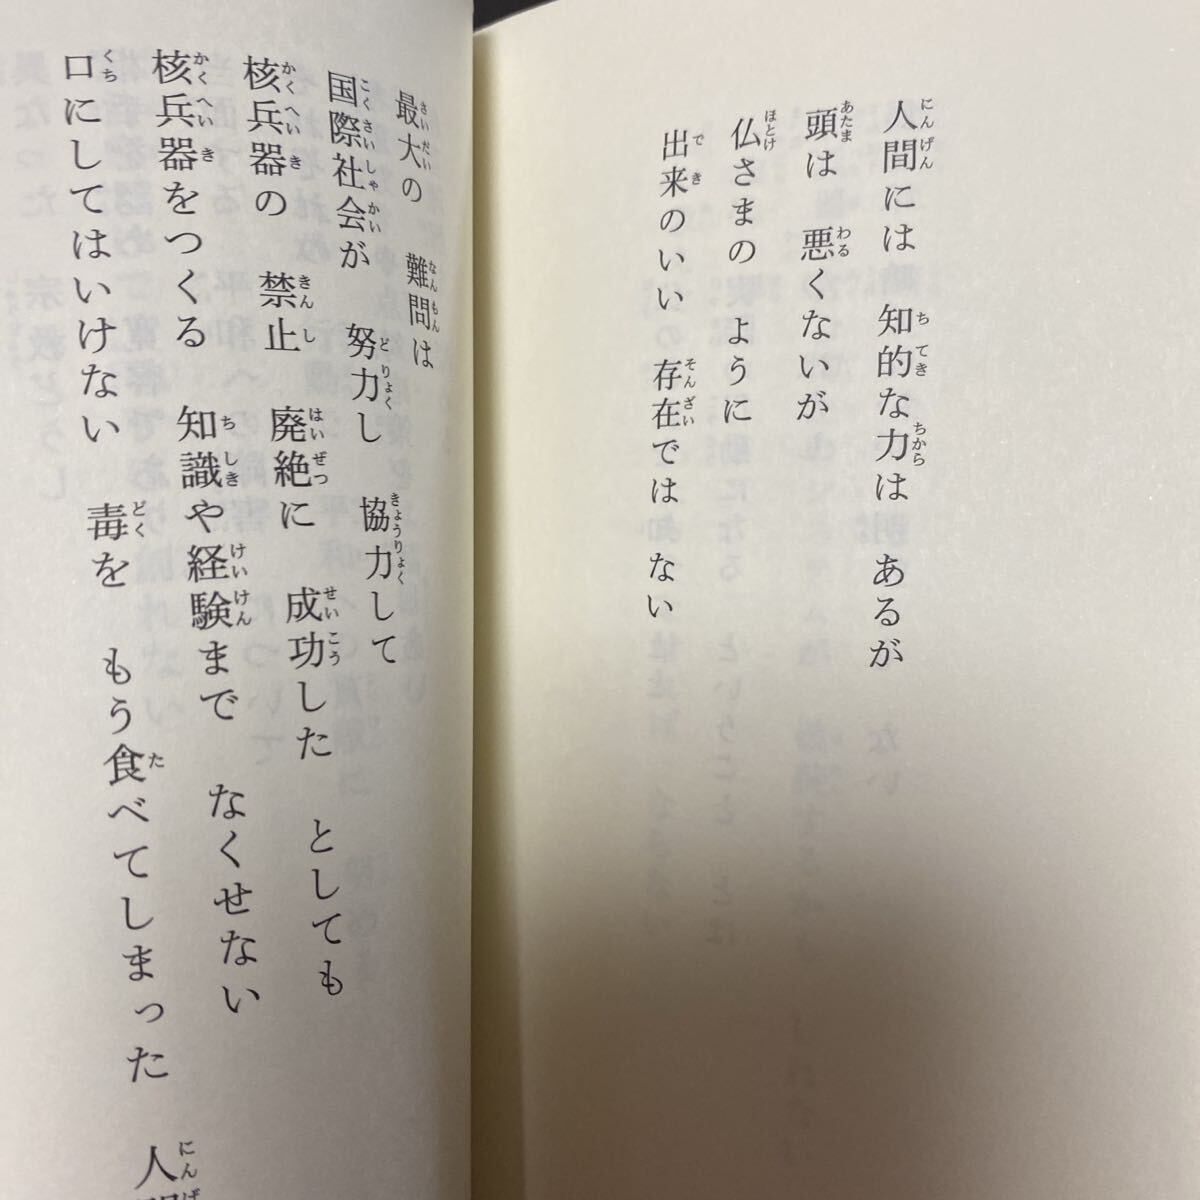 人間には　知的な力は　あるが
頭は　悪くないが
仏さまの　ように
出来のいい　存在では　ない
最大の　難問は
国際社会が　努力し　協力して
核兵器の　禁止　廃絶に　成功した　としても
核兵器をつくる　知識や経験まで　なくせない
口にしてはいけない　毒を　もう食べてしまった　人